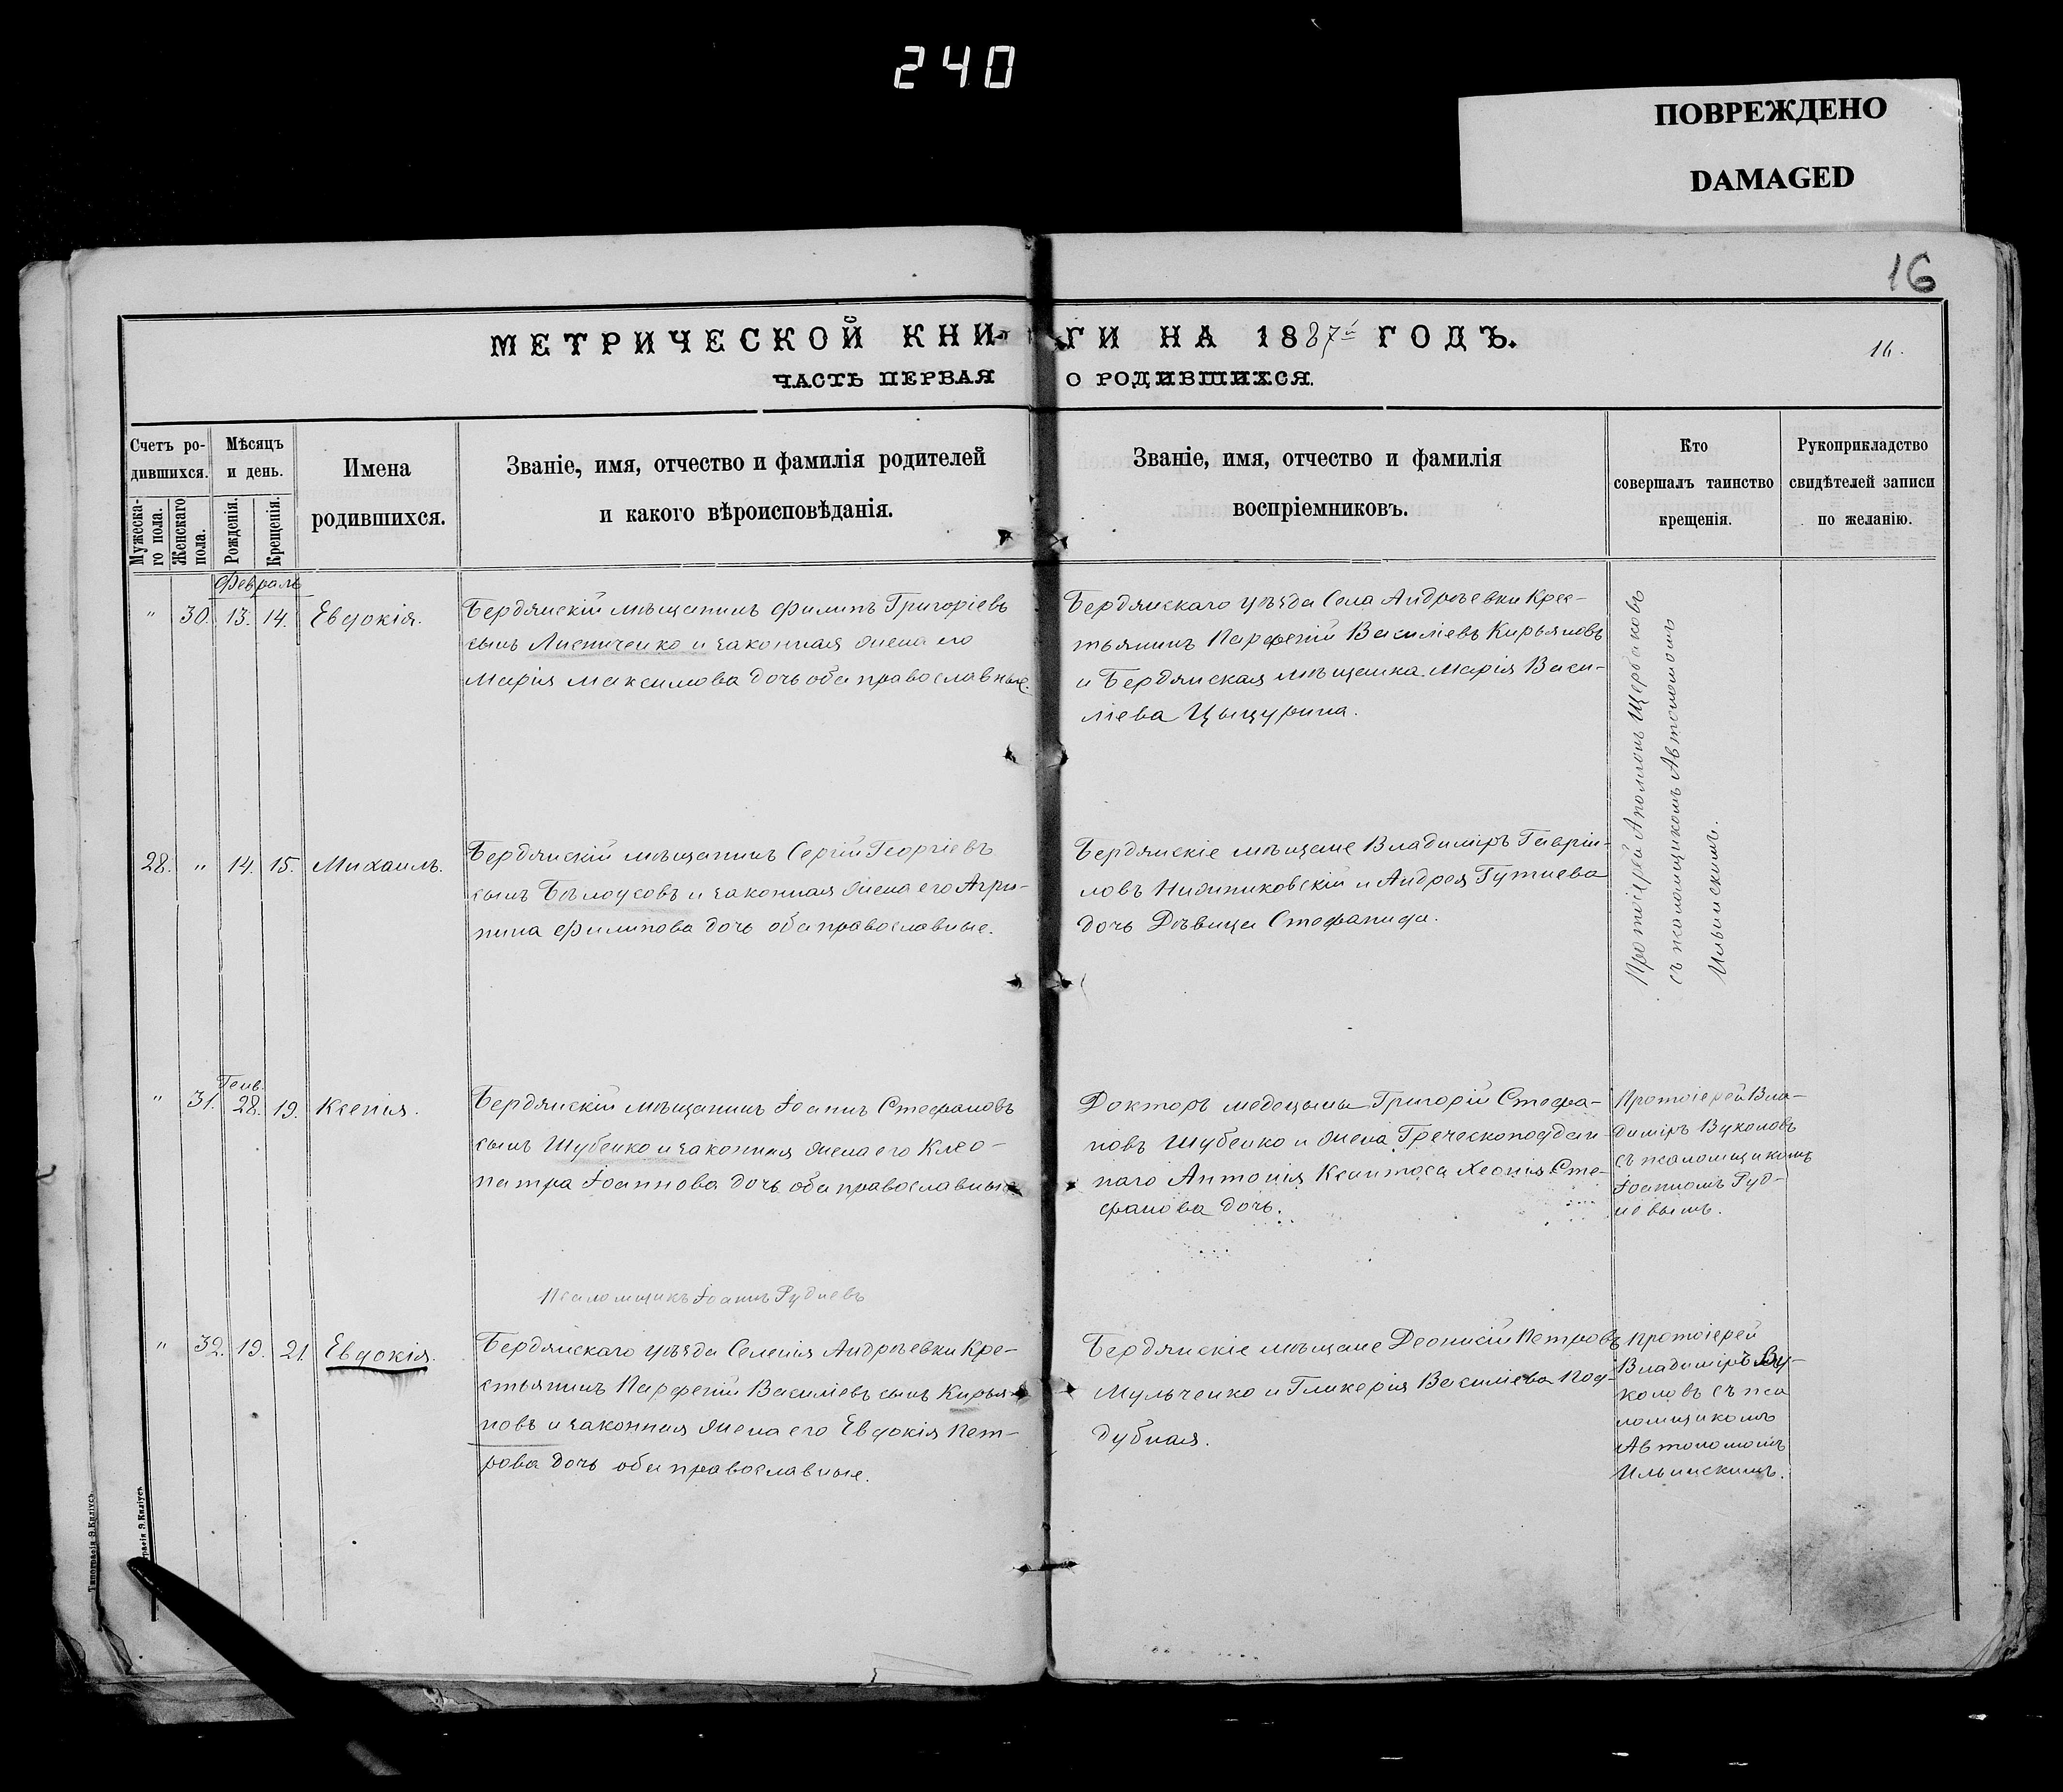 240
ПОВРЕЖДЕНО
DAMAGED
16
МЕТРИЧЕСКОЙ КНИГИ НА 1887й ГОДЪ.
16.
ЧАСТЬ ПЕРВАЯ О РОДИВШИХСЯ.
Счетъ ро-
дившихся.
Мужеска-
го пола.
Женскаго
пола.
Мѣсяцъ
и день.
Рожденія.
Крещенія.
Имена
родившихся.
Званіе, имя, отчество и фамилія родителей
и какого вѣроисповѣданія.
Званіе, имя, отчество и фамилія
воспріемниковъ.
Кто
совершалъ таинство
крещенія.
Рукоприкладство
свидѣтелей записи
по желанію.
Февраль
" 30. 13. 14. Евдокія.
Бердянскій мѣщанинъ Филипъ Григоріевъ
сынъ Листиченко и законная жена его
Марія Максимова дочь оба православные.
Бердянскаго уѣзда Села Андреевки Крес-
тьянинъ Парфеній Василіевъ Кирьяновъ
и Бердянская мѣщанка Марія Васи-
ліева Цыцурина.
Протоіерей Аполлонъ Щербаковъ
съ псаломщикомъ Автономомъ
Ильинскимъ.
28. " 14. 15. Михаилъ.
Бердянскій мѣщанинъ Сергій Георгіевъ
сынъ Бѣлоусовъ и законная жена его Агри-
пина Филипова дочь оба православные.
Бердянскіе мѣщане Владиміръ Гавріи-
ловъ и Андрея
дочь Дѣвица Стефанида.
" 31. Генв. 28. 19. Ксенія.
Бердянскій мѣщанинъ Іоаннъ Стефановъ
сынъ Шубенко и законная жена его Клео-
патра Іоаннова дочь оба православные
Докторъ медецыны Григорій Стефа-
новъ Шубенко и жена Греческоподдан-
наго Антонія Ксантоса Сте-
фанова дочь.
Протоіерей Вла-
диміръ Вуколовъ
съ псаломщикомъ
Іоанномъ Руд-
невымъ.
Псаломщикъ Іоаннъ Рудневъ
" 32. 19. 21. Евдокія.
Бердянскаго уѣзда Селенія Андреевки Кре-
стьянинъ Парфеній Василіевъ сынъ Кирья-
новъ и законная жена его Евдокія Пет-
рова дочь оба православные.
Бердянскіе мѣщане Деонисій Петровъ
Мульченко и Гликерія Василіева Под-
дубная.
Протоіерей
Владиміръ Ву-
коловъ съ пса
ломщикомъ
Автономомъ
Ильинскимъ.
Типографія Э.Килiусъ